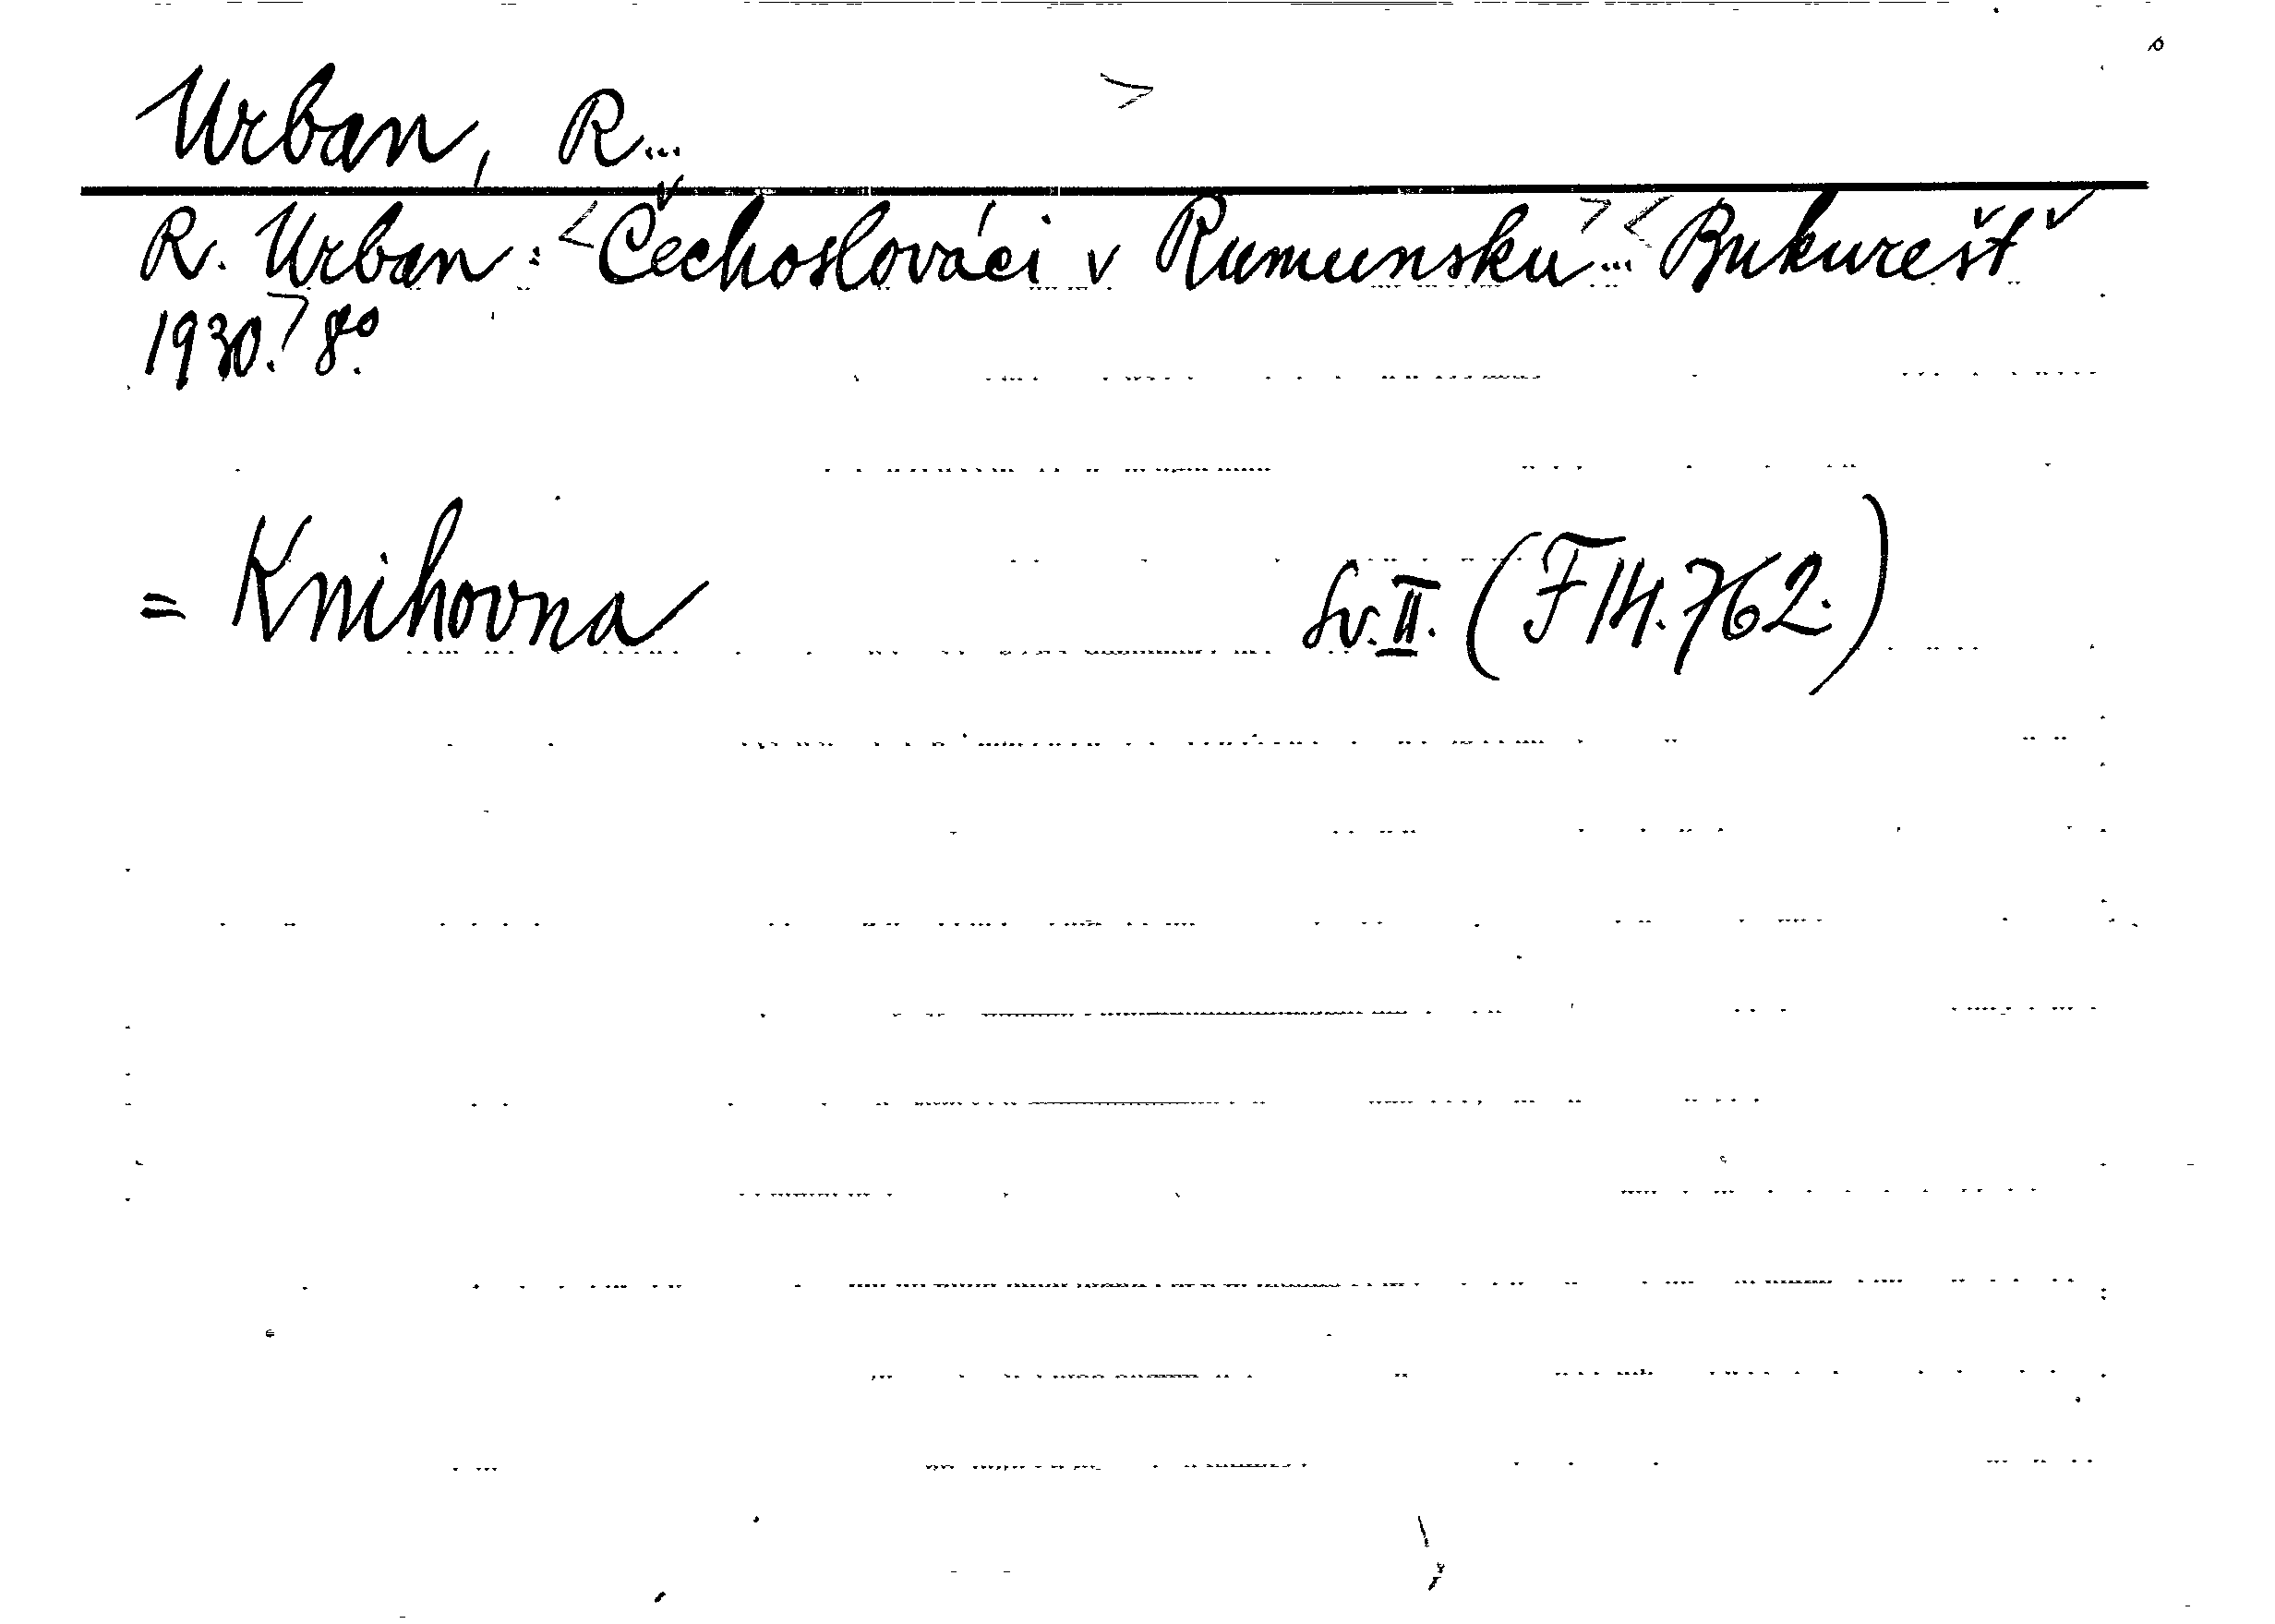 Urban, R...
R. Urban: <Čechoslováci v Rumunsku>... <Bukurešť
1930.> 8°.
= Knihovna Sv. II. (F 14.762.)